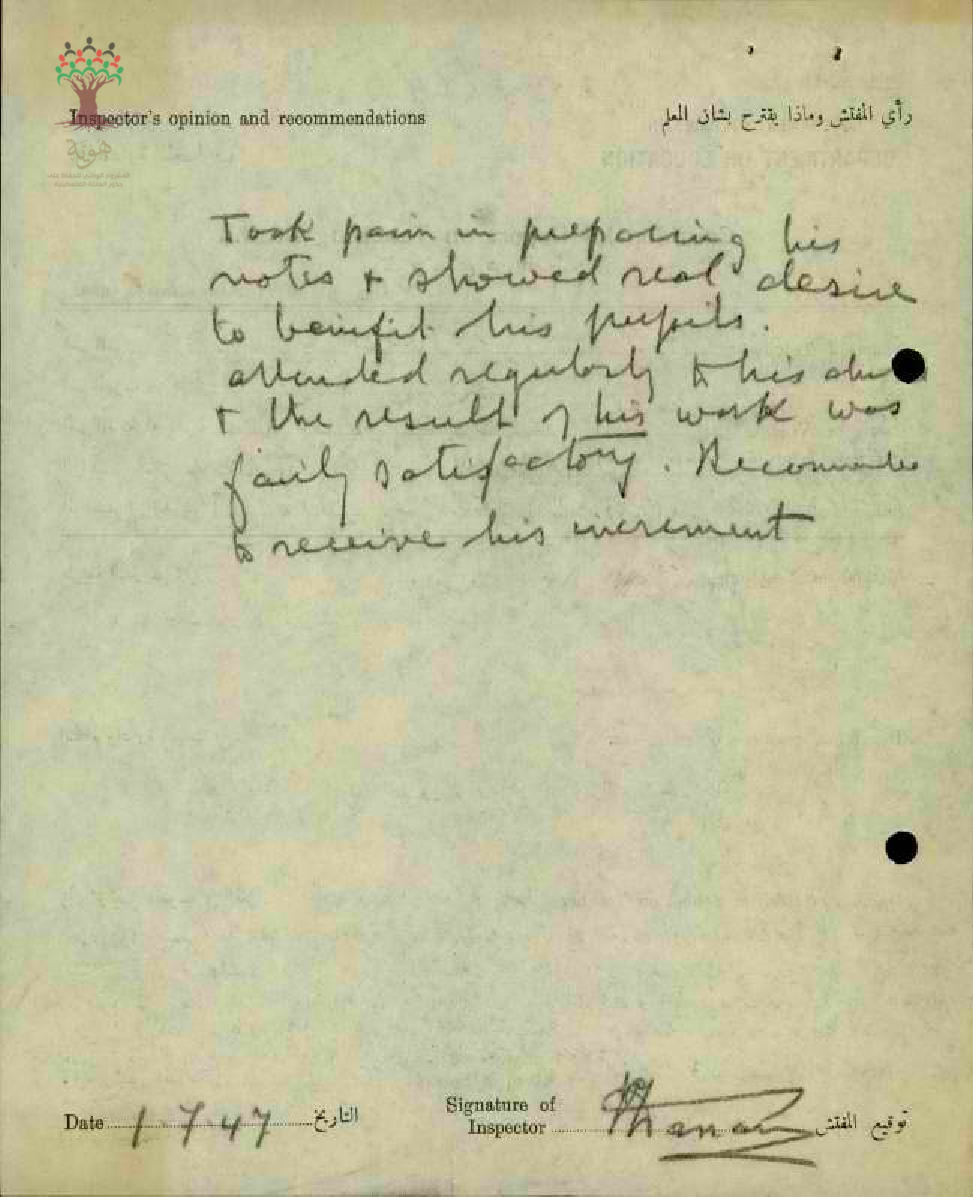 Inspector's opinion and recommendations
رأي المفتش وماذا يقترح بشان المعلم
هوية
Took pain in preparing his
notes + showed real desire
to benifit his pupils.
attended regularly to his
+ the result of his work was
fairly satifactory. Recommended
to receive his increment
Date 1-7-47 التاريخ
Signature of
Inspector توقيع المفتش